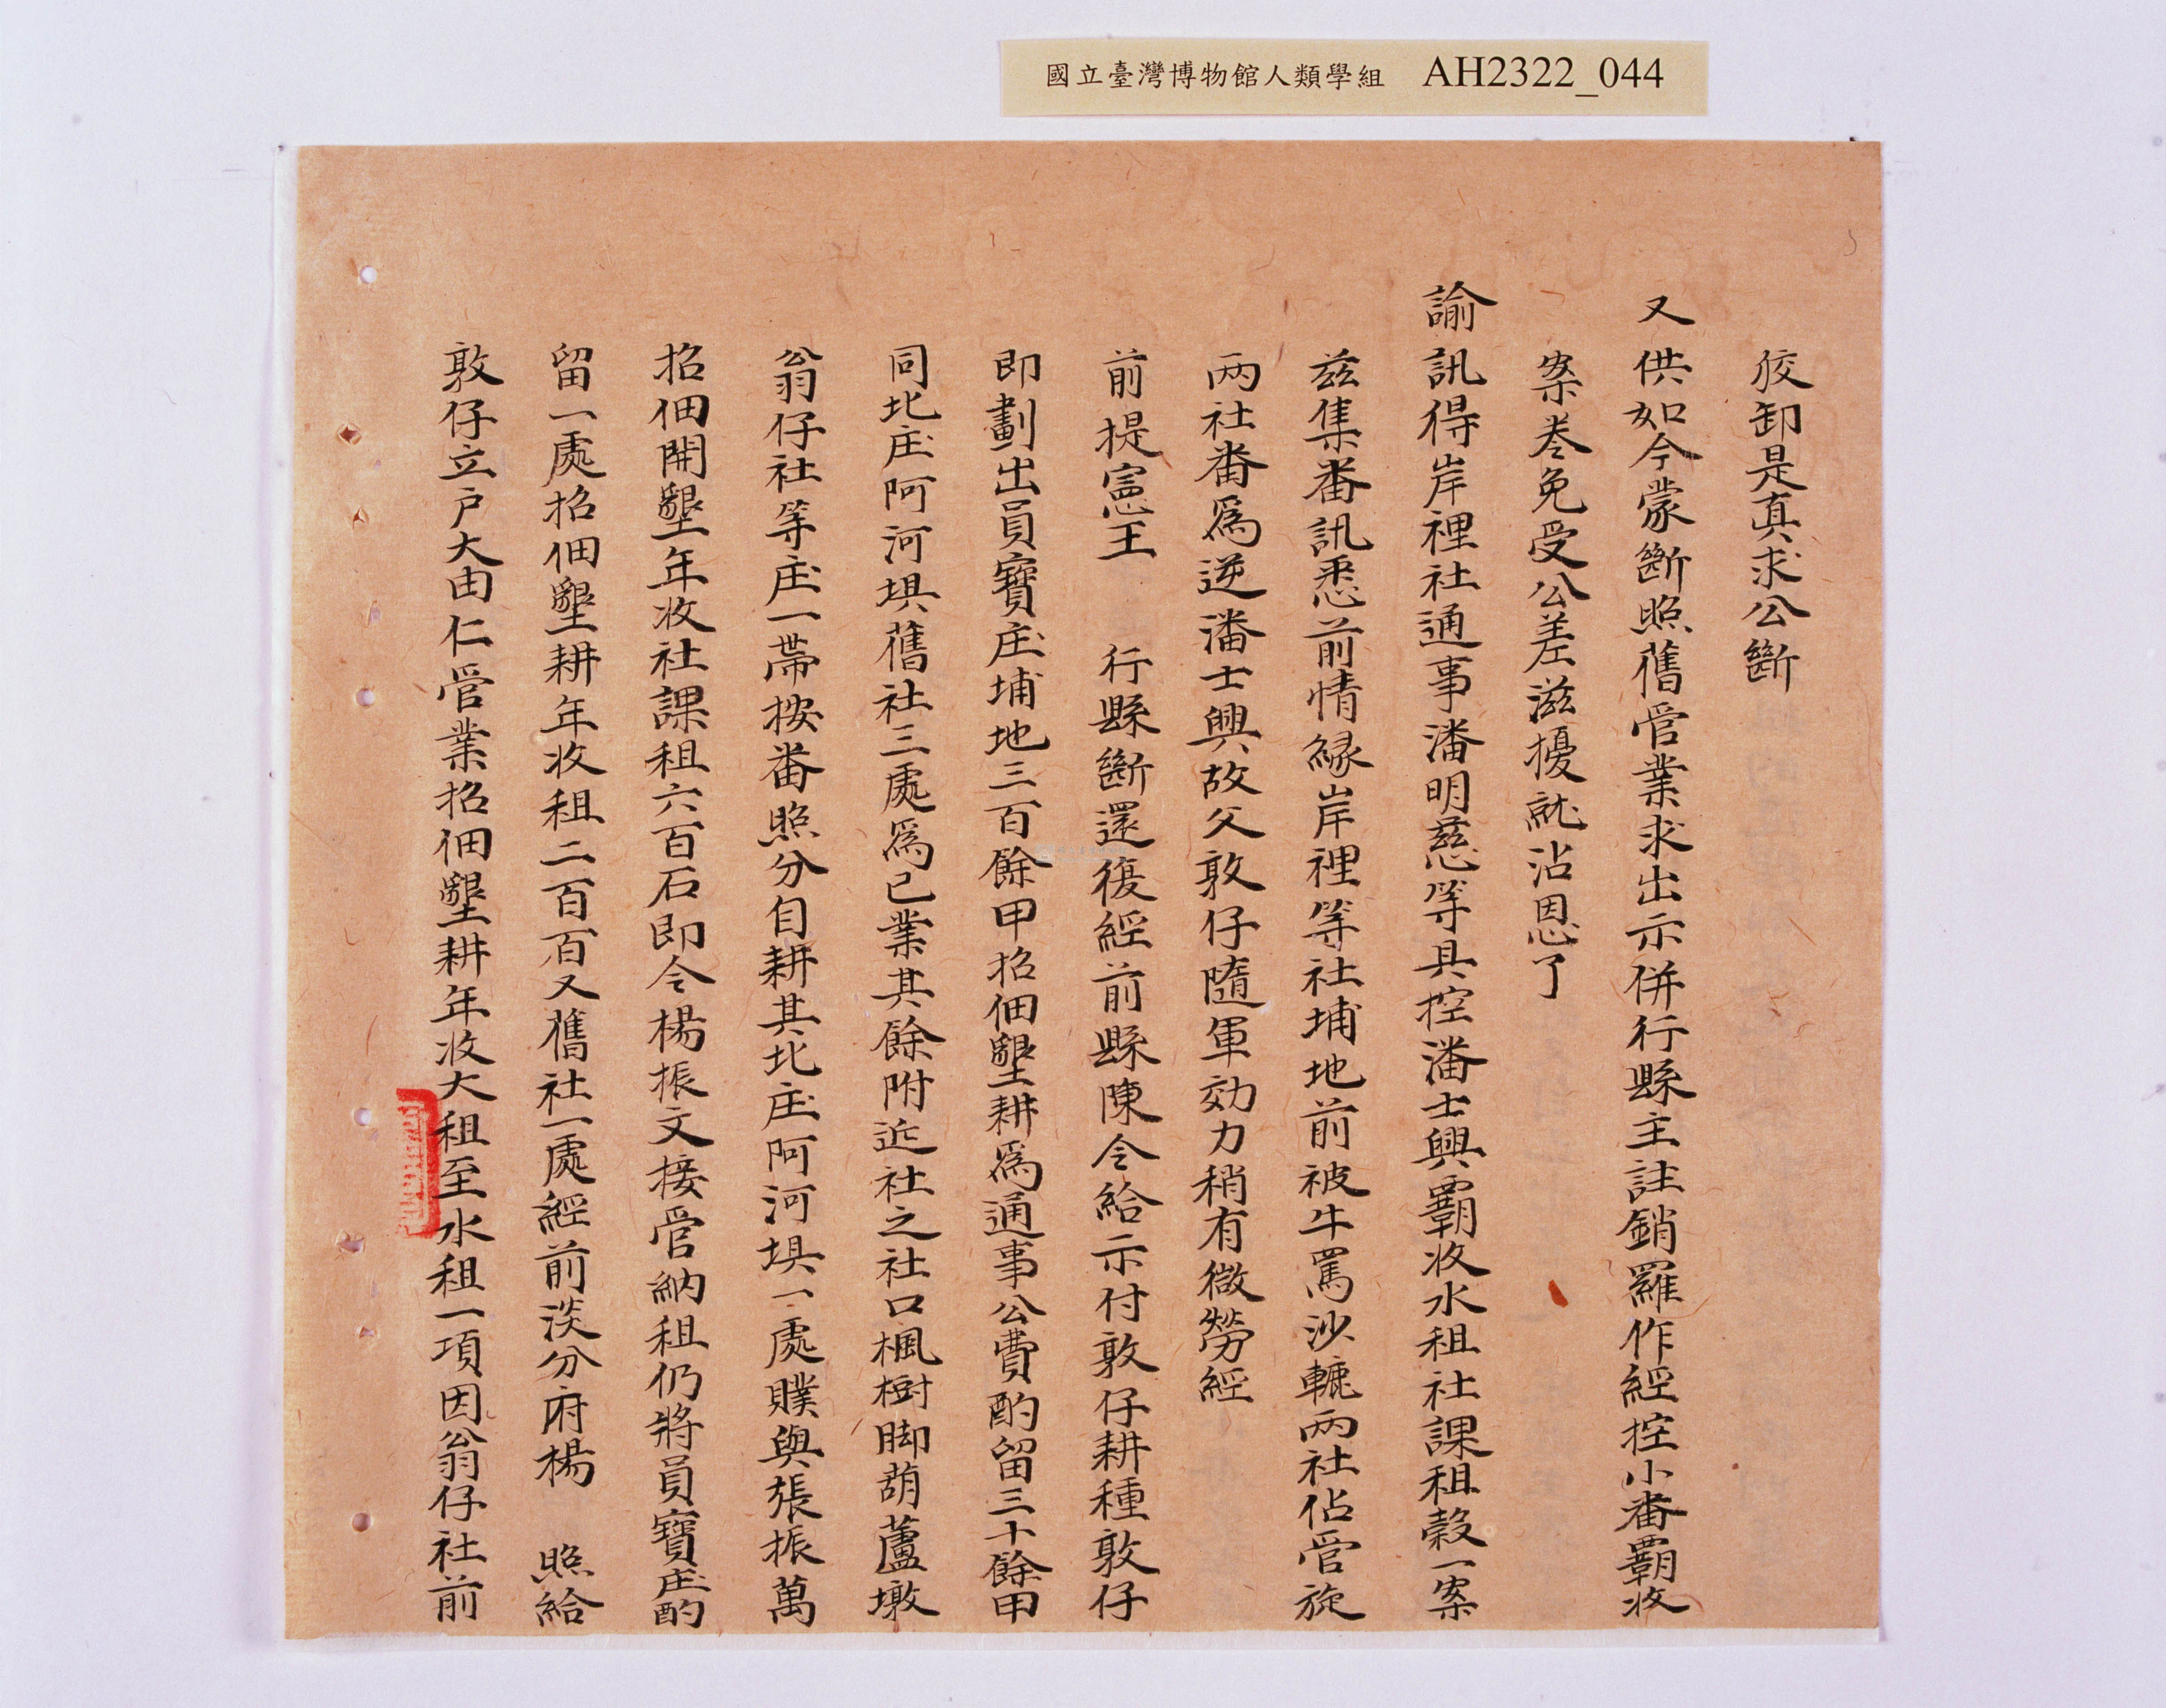 國立臺灣博物館人類學組 AH2322_044
佼卸是真求公斷
又供如今蒙斷照舊管業求出示併行縣主註銷羅作經控小番霸收
案卷免受公差滋擾就沾恩了
諭訊得岸裡社通事潘明慈等具控潘士興霸收水租社課租穀一案
兹集番訊悉前情緣岸裡等社埔地前被牛罵沙轆兩社佔管旋
兩社番為逆潘士興故父敦仔隨軍効力稍有微勞經
前提憲王 行縣斷還復經前縣陳令給示付敦仔耕種敦仔
即劃出員寶庄埔地三百餘甲招佃墾耕為通事公費酌留三十餘甲
同北庄阿河埧舊社三處為已業其餘附近社之社口楓樹脚葫蘆墩
翁仔社等庄一帶按番照分自耕其北庄阿河埧一處贌與張振萬
招佃開墾年收社課租六百石即令楊振文接管納租仍將員寶庄酌
留一處招佃墾耕年收租二百百又舊社一處經前淡分府楊 照給
敦仔立戶大由仁管業招佃墾耕年收大租至水租一項因翁仔社前